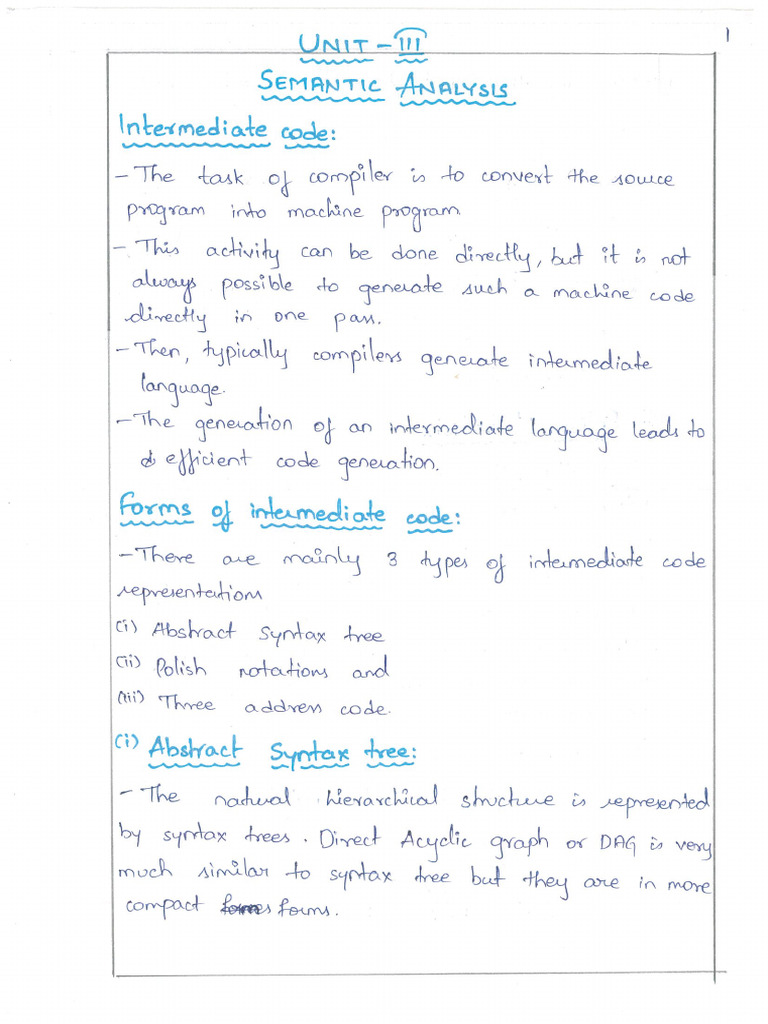 1
UNIT - III
SEMANTIC ANALYSIS
Intermediate code:
- The task of compiler is to convert the source
program into machine program.
- This activity can be done directly, but it is not
always possible to generate such a machine code
directly in one pass.
- Then, typically compilers generate intermediate
language.
- The generation of an intermediate language leads to
efficient code generation.
Forms of intermediate code:
- There are mainly 3 types of intermediate code
representations
(i) Abstract syntax tree
(ii) Polish notations and
(iii) Three address code.
(i) Abstract Syntax tree:
- The natural hierarchical structure is represented
by syntax trees. Direct Acyclic graph or DAG is very
much similar to syntax tree but they are in more
compact forms.